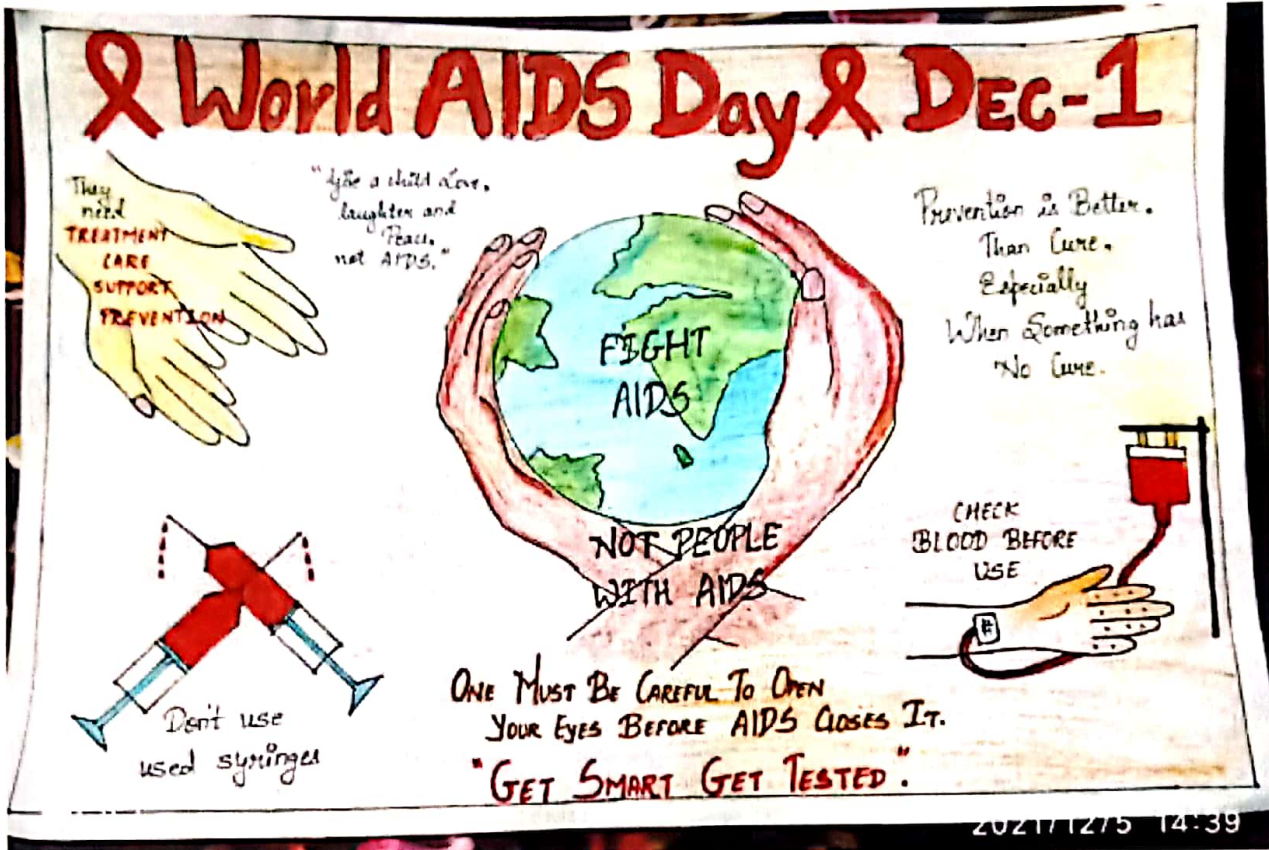 World AIDS Day DEC-1
They
need
TREATMENT
CARE
SUPPORT
PREVENTION
"Give a child Love,
laughter and
Peace,
not AIDS."
Prevention is Better.
Than Cure.
Especially
When Something has
No Cure.
FIGHT
AIDS
NOT PEOPLE
WITH AIDS
CHECK
BLOOD BEFORE
USE
Don't use
used syringes
ONE MUST BE CAREFUL TO OPEN
YOUR EYES BEFORE AIDS CLOSES IT.
"GET SMART GET TESTED".
2021/12/5 14:39